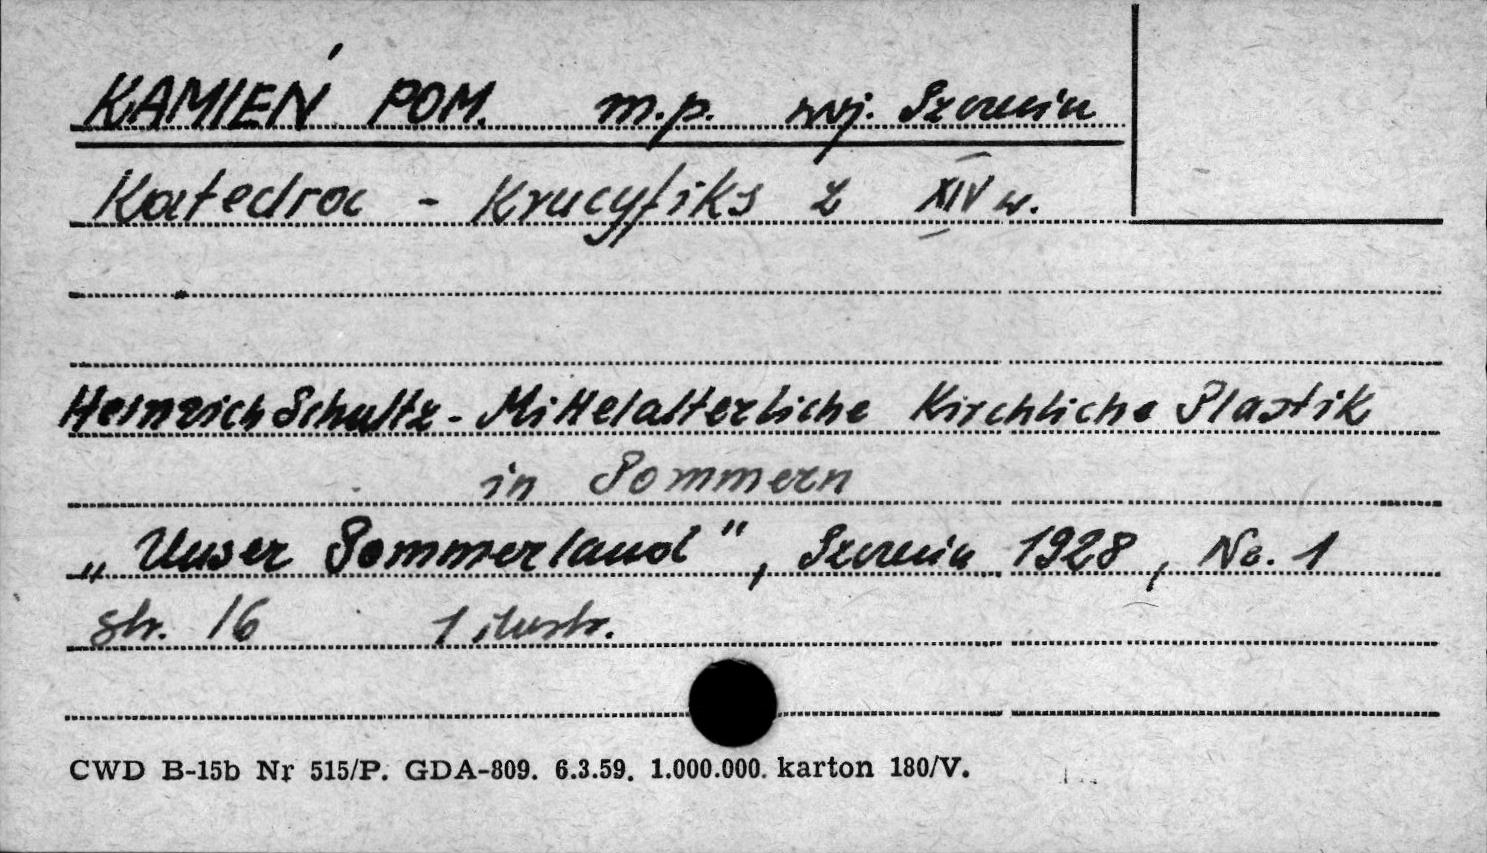 KAMIEŃ POM. m.p. woj. Szczecin
Katedra - Krucyfiks z XIV w.
Heinrich Schultz - Mittelalterliche Kirchliche Plastik
in Pommern
„Unser Pommerland", Szczecin 1928, No. 1
str. 16 1 ilustr.
CWD B-15b Nr 515/P. GDA-809. 6.3.59. 1.000.000. karton 180/V.